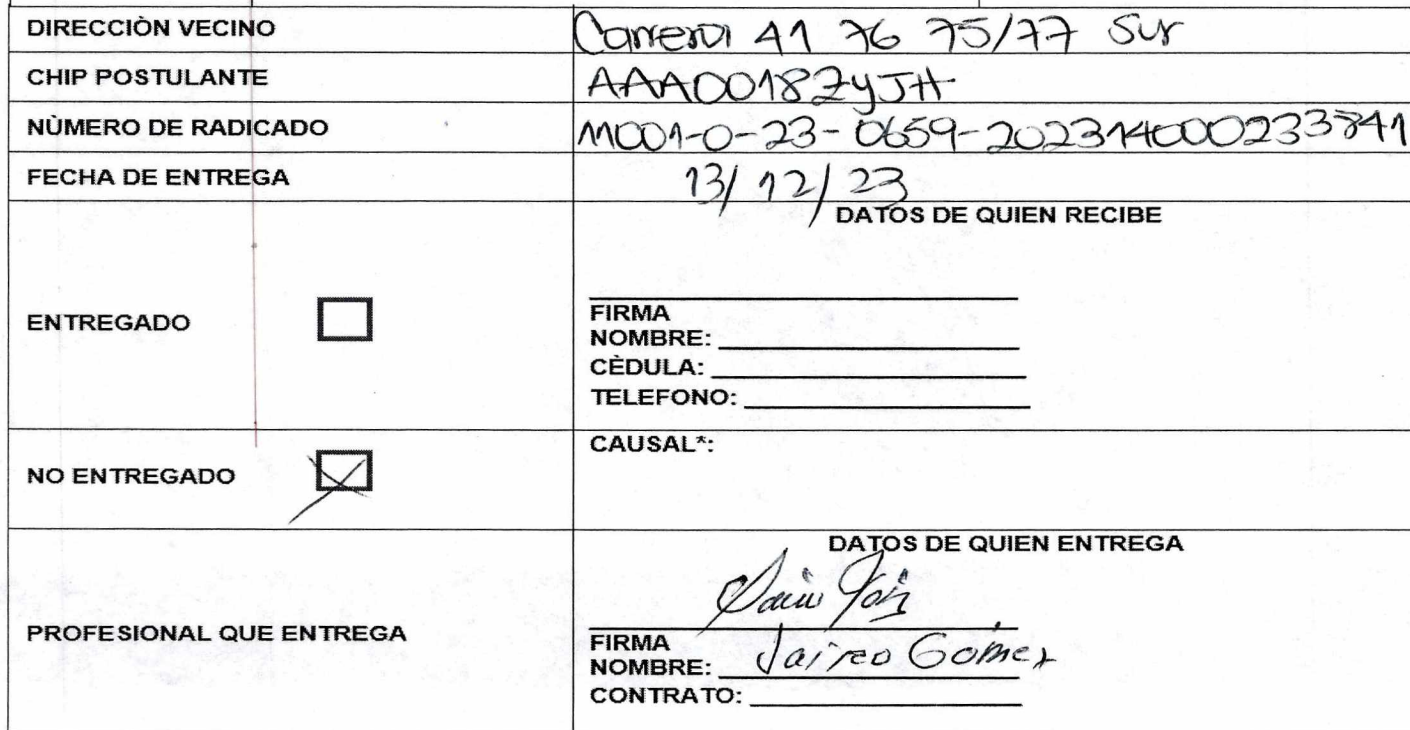 DIRECCIÒN VECINO Carrera 41 76 75/77 Sur
CHIP POSTULANTE AAA0018ZYJH
NÙMERO DE RADICADO 11001-0-23-0659-202314000233841
FECHA DE ENTREGA 13/12/23
DATOS DE QUIEN RECIBE
ENTREGADO
FIRMA
NOMBRE:
CÈDULA:
TELEFONO:
NO ENTREGADO
CAUSAL*:
DATOS DE QUIEN ENTREGA
PROFESIONAL QUE ENTREGA
FIRMA
NOMBRE: Jairo Gómez
CONTRATO: